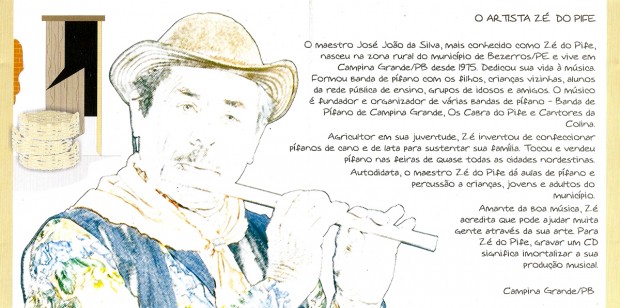 O ARTISTA ZÉ DO PIFE
O maestro José João da Silva, mais conhecido como Zé do Pife,
nasceu na zona rural do município de Bezerros/PE e vive em
Campina Grande/PB desde 1975. Dedicou sua vida à música.
Formou Banda de pífano com os filhos, crianças vizinhas, alunos
da rede pública de ensino, grupos de idosos e amigos. O músico
é fundador e organizador de várias bandas de pífano - Banda de
Pífano de Campina Grande, Os Cabra do Pife e Cantores da
Colina.
Agricultor em sua juventude, Zé inventou de confeccionar
pífanos de cano e de lata para sustentar sua família. Tocou e vendeu
pífano nas feiras de quase todas as cidades nordestinas.
Autodidata, o maestro Zé do Pife dá aulas de pífano e
percussão a crianças, jovens e adultos do
município.
Amante da boa música, Zé
acredita que pode ajudar muita
gente através da sua arte. Para
Zé do Pife, gravar um CD
significa imortalizar a sua
produção musical.
Campina Grande/PB